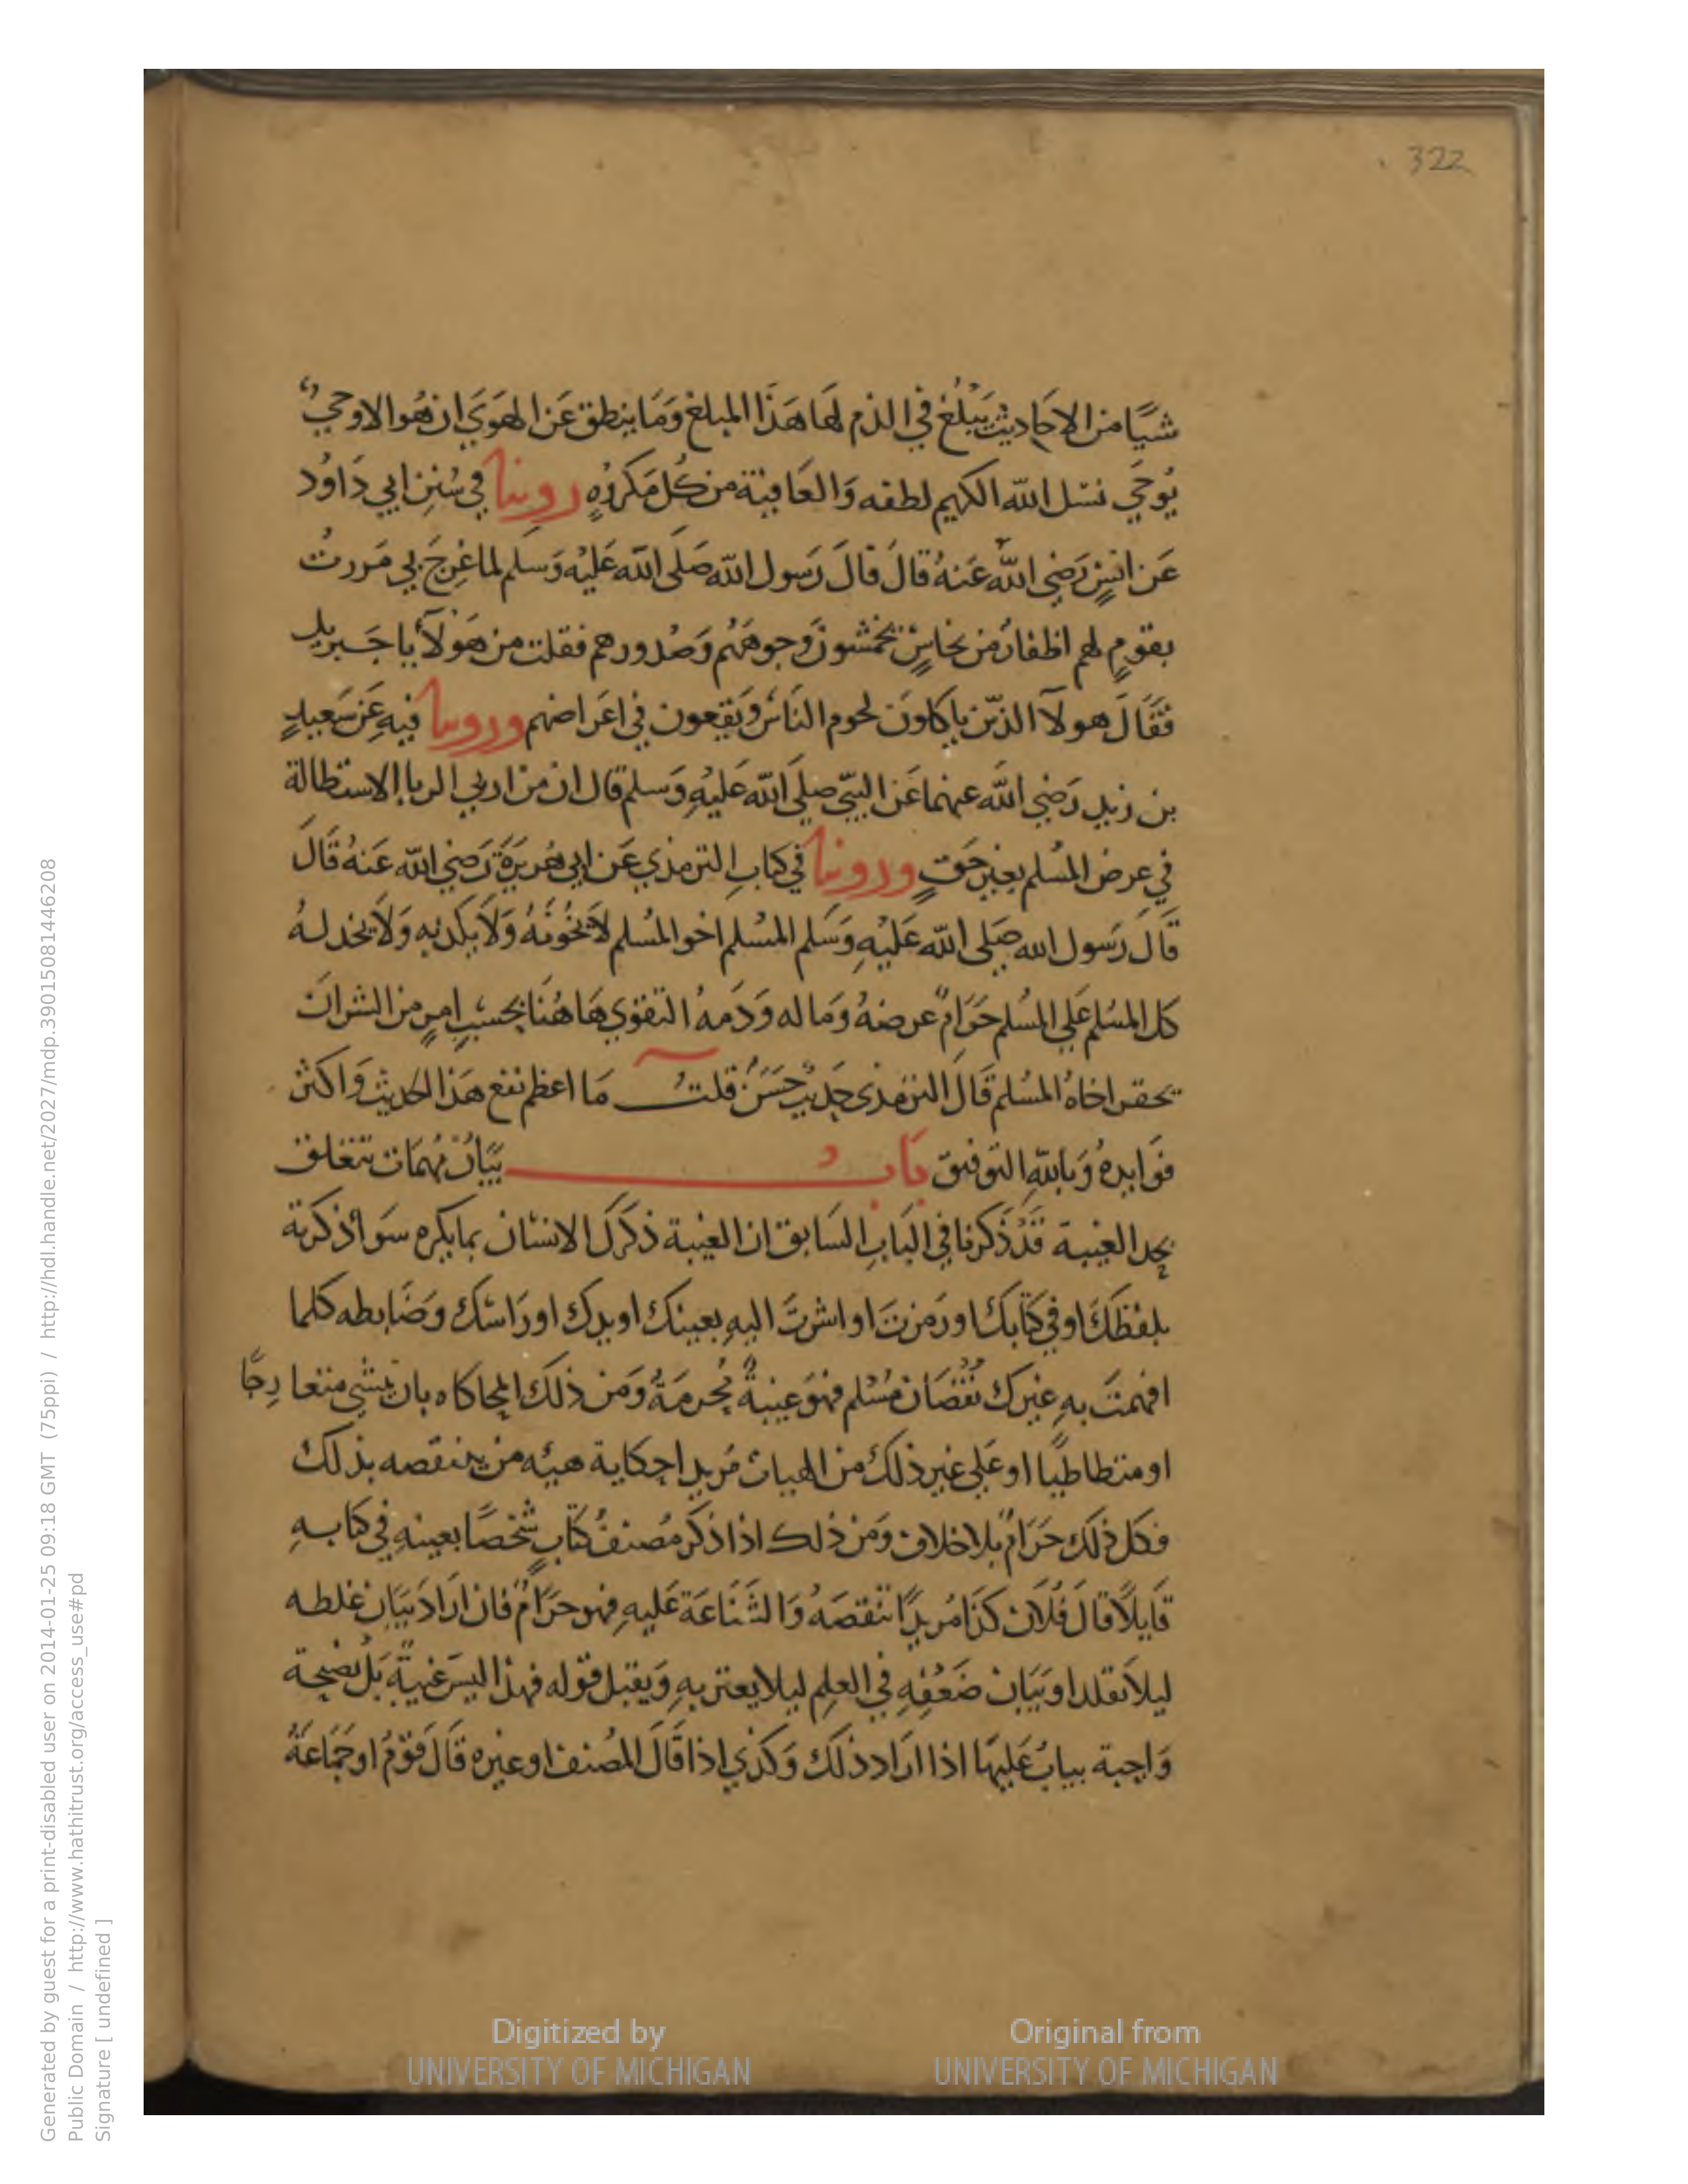 322
شيًا من الاحاديث يَبْلُغ في الذم لهَا هَذَا المبلغ وَمَا ينطق عَن الهوَي ان هُوا الا وحيٌ
يُوحَي نسَل الله الكريم لطفه وَالعَافية من كُل مَكروُهٍ روينا في سُنن ابي دَاوُد
عَن انسٍ رَضي الله عَنهُ قالَ قالَ رَسول الله صَلى الله عَليْه وَسلم لما عُرِجَ بي مَررتُ
بقومٍ لهم اظفارُ من نحاسٍ يخمشونَ وجوههُم وَصُدورهم فقلت من هَولآء يا جَبريل
فقَالَ هولآ الذين ياكلونَ لحوم الناسَ وَيقعون في اعَراضهم وروينا فيه عَن سَعيدٍ
بن زيد رَضي الله عنهما عَن النبيّ صلى الله عَليْهِ وَسلم قال ان من اربي الربا الاستطالة
في عرض المُسلم بغير حَقٍ وروينا في كتابِ الترمذي عَن ابي هُريرَةَ رَضي الله عَنهُ قالَ
قالَ رَسول الله صَلى الله عَليْهِ وَسَلم المُسْلم اخو المُسلم لَا يَخُونُهُ وَلَا يكذبه وَلَا يخدلهُ
كل المسْلم عَلي المسُلم حَرَامٌ عرضهُ وَماله وَدَمهُ التقوي هَاهُنَا بحسْبِ امرٍ من الشر انَ
يحقر اخاهُ المسُلم قالَ الترمذي حَديث حسَنٌ قلتُ مَا اعظم نفع هَذا الحديث وَاكثر
فوَايدهُ وَبالله التوفيق بَابُ بيَان مُهمَات تتعَلق
بحد الغيبة قَدْ ذَكرنا في البَابِ السَابق ان الغيبة ذكرَك الانسْان بما يكره سَوا ذكرته
بلفظكَ اوفي كتَابكَ او رَمزتَ او اشرتَ اليهِ بعينك او يدك او رَاسْك وَضَابطه كلما
افهمتَ بهِ غيرك نقصَان مُسْلم فهو غيبةٌ مُحرمَةُ وَمن ذلك المحاكاه بان يمشي متعَارجًا
او متطاطيا او عَلي غير ذلك من الهيات مُريدا حكاية هيئه من ينتقصه بذلك
فكل ذلك حَرَامٌ بلا خلاف وَمن ذلك اذا ذكر مُصنفُ كتَابٍ شخصًا بعينهِ في كتابهِ
قايلًا قالَ فُلَان كذَا مُريدًا تنقصَهُ وَالشَنَاعَة عَليهِ فهو حرَامٌ فان ارَادَ بيَان غلطه
ليلا يقلد او بَيَان ضَعْفِهِ في العلم ليلا يعتر بهِ وَيقبل قوله فهذا ليسَ غيبةً بَل نصُيحة
وَاجبة يثابُ عَليهَا اذا ارَاد ذلَك وَكذي اذا قالَ المصُنف او غيره قالَ قوْمٌ او جمَاعَةُ
Digitized by
UNIVERSITY OF MICHIGAN
Original from
UNIVERSITY OF MICHIGAN
Generated by guest for a print-disabled user on 2014-01-25 09:18 GMT (75ppi) / http://hdl.handle.net/2027/mdp.39015081446208
Public Domain / http://www.hathitrust.org/access_use#pd
Signature [ undefined ]